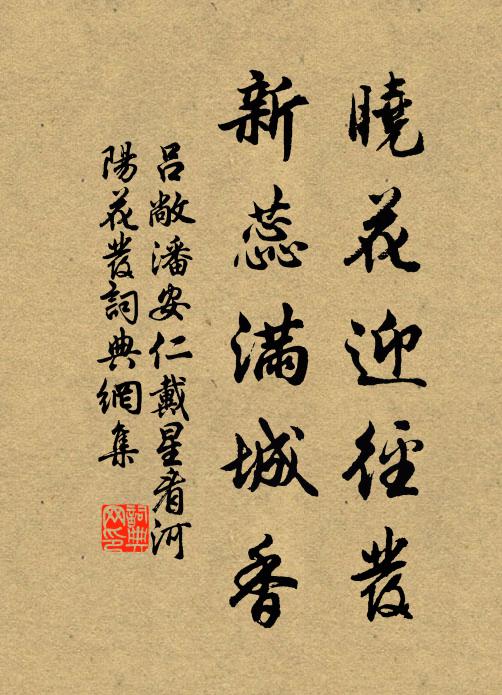 曉花迎徑發
新蕊滿城香
呂敞潘安仁戴星看河
陽花發詞典網集
詞典網印